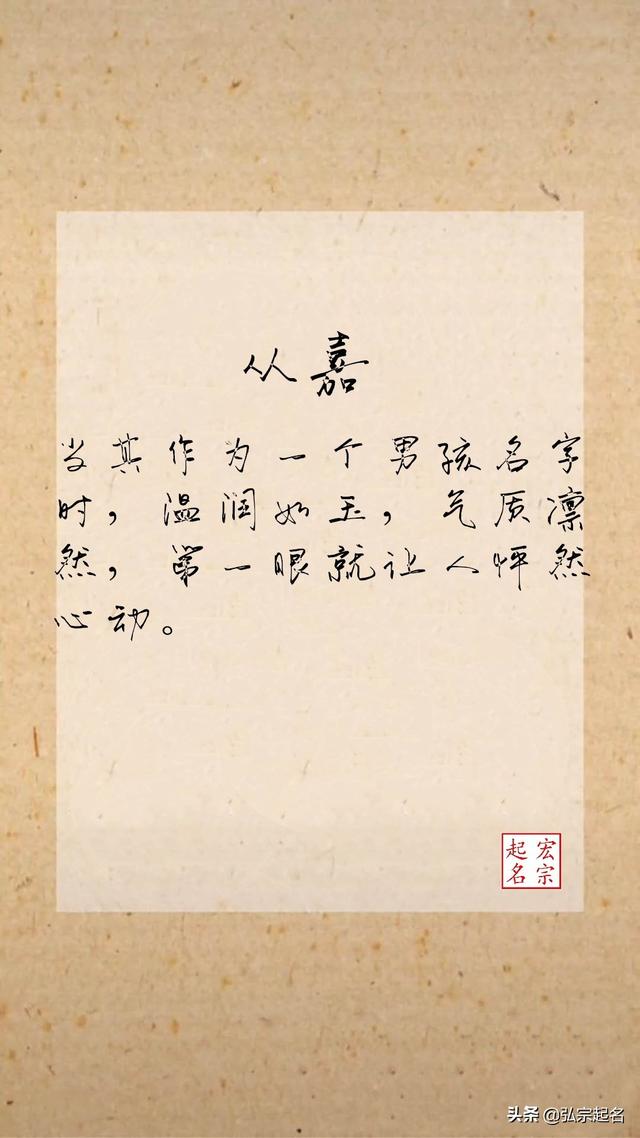 从嘉
当其作为一个男孩名字
时，温润如玉，气质凛
然，第一眼就让人怦然
心动。
宏宗
起名
头条 @弘宗起名